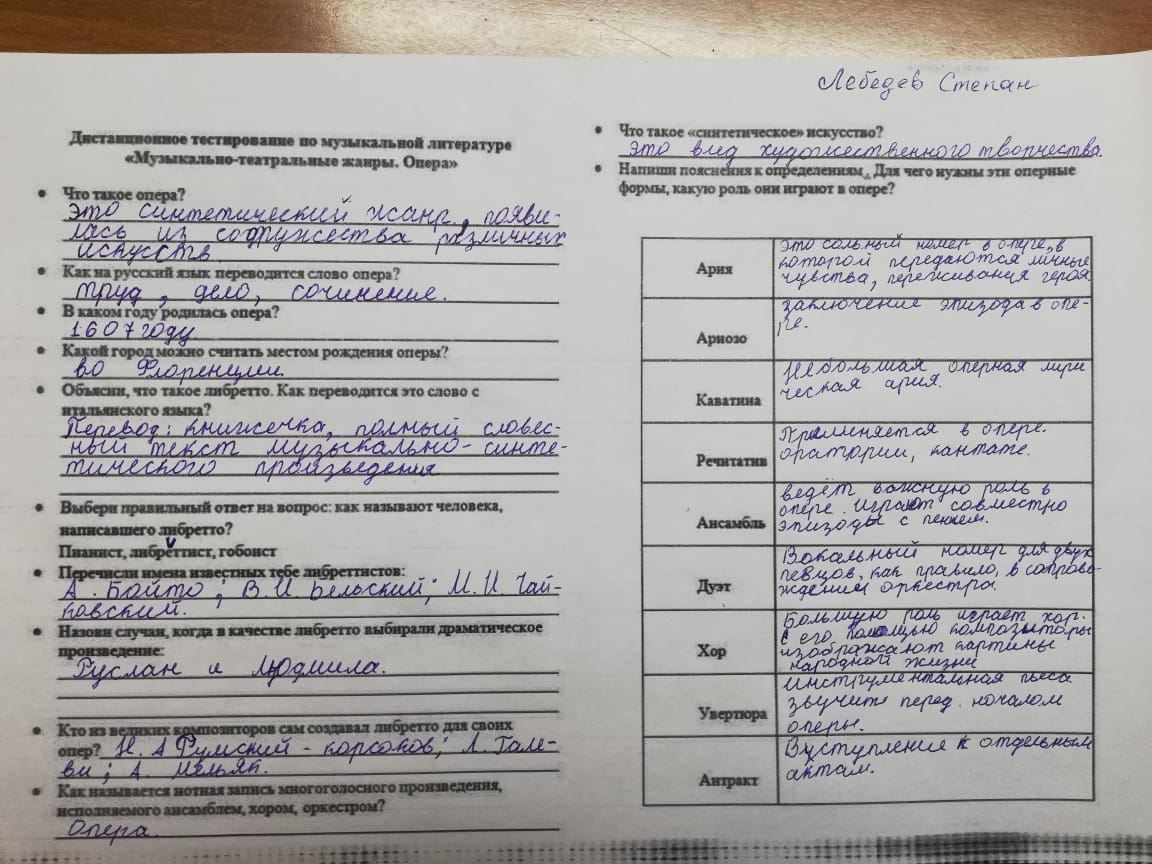 Лебедев Степан
Дистанционное тестирование по музыкальной литературе
«Музыкально-театральные жанры. Опера»
• Что такое опера?
Это синтетический жанр, появи-
лась из содружества различных
искусств
• Как на русский язык переводится слово опера?
труд, дело, сочинение.
• В каком году родилась опера?
1607 году.
• Какой город можно считать местом рождения оперы?
во Флоренции
• Объясни, что такое либретто. Как переводится это слово с
итальянского языка?
Перевод: книжечка, полный словес-
ный текст музыкально-синте-
тического произведения
• Выбери правильный ответ на вопрос: как называют человека,
написавшего либретто?
Пианист, либреттист, гобоист
• Перечисли имена известных тебе либреттистов:
А. Бойто; В. И. Бельский; М. И. Чай-
ковский.
• Назови случаи, когда в качестве либретто выбирали драматическое
произведение:
Руслан и Людмила.
• Кто из великих композиторов сам создавал либретто для своих
опер? Н. А Румский - корсоков; Л. Гале-
ви; А. Мельяк.
• Как называется нотная запись многоголосного произведения,
исполняемого ансамблем, хором, оркестром?
Опера.
• Что такое «синтетическое» искусство?
это вид художественного творчества.
• Напиши пояснения к определениям. Для чего нужны эти оперные
формы, какую роль они играют в опере?
Ария
это сольный номер в опере, в
которой передаются личные
чувства, переживания героя.
Ариозо
заключение эпизода в опе-
ре.
Каватина
Небольшая оперная лири
ческая ария.
Речитатив
Применяется в опере.
оратории, кантате.
Ансамбль
ведёт важную роль в
опере. Играют совместно
эпизоды с пением.
Дуэт
Вокальный номер для двух
певцов, как правило, в сопрово-
ждении оркестра.
Хор
Большую роль играет хор.
С его помощью композиторы
изображают картины
народной жизни
Увертюра
Инструментальная пьеса
звучите перед началом
оперы.
Антракт
Вуступление к отдельным
актам.